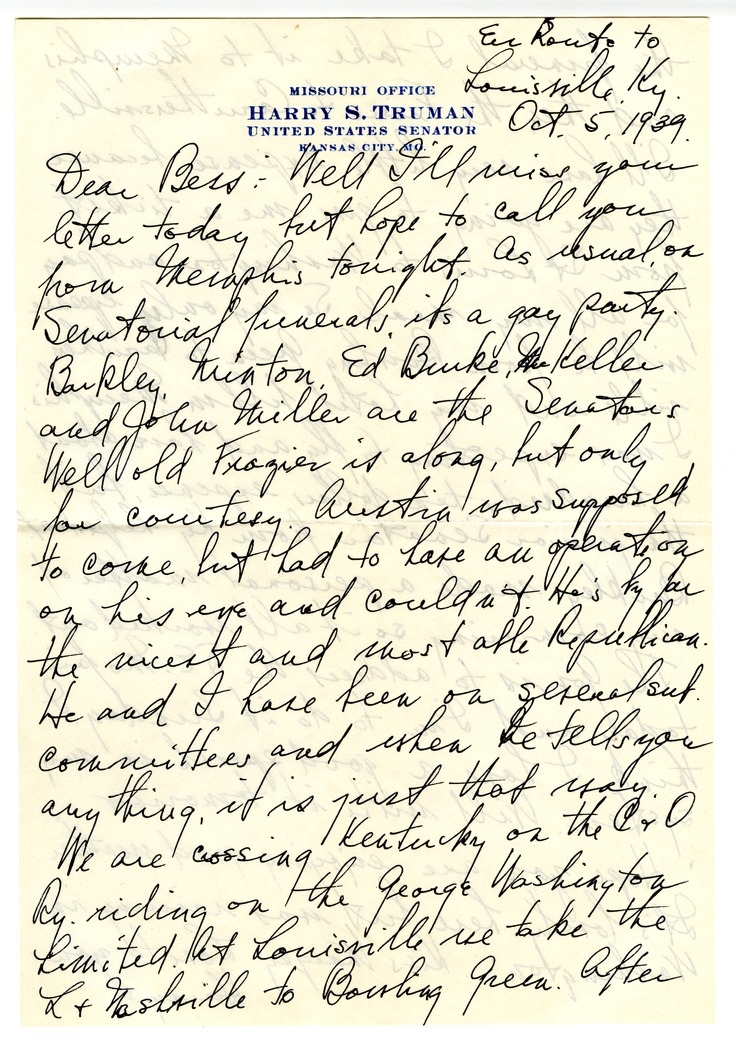 En Route to
Louisville, Ky.
Oct. 5, 1939.
MISSOURI OFFICE
HARRY S. TRUMAN
UNITED STATES SENATOR
KANSAS CITY, MO.
Dear Bess:- Well I'll miss your
letter today but hope to call you
from Memphis tonight. As usual, on
Senatorial funerals, its a gay party.
Barkley, Minton, Ed Burke, McKeller
and John Miller are the Senators
Well old Frazier is along, but only
for courtesy. Austin was supposed
to come, but had to have an operation
on his eye and couldn't. He's by far
the nicest and most able Republican.
He and I have been on several sub.
committees and when he tells you
anything, it is just that way.
We are crossing Kentucky on the C & O
Ry. riding on the George Washington
Limited. At Louisville we take the
L & Nashville to Bowling Green. After